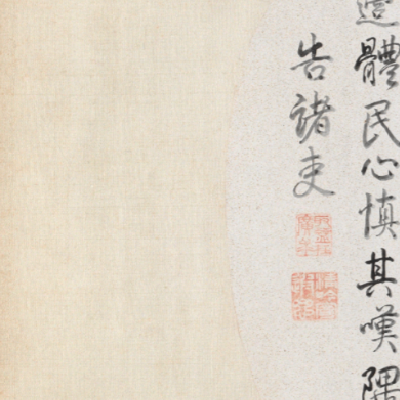 體民心慎其嘆隅
告諸吏